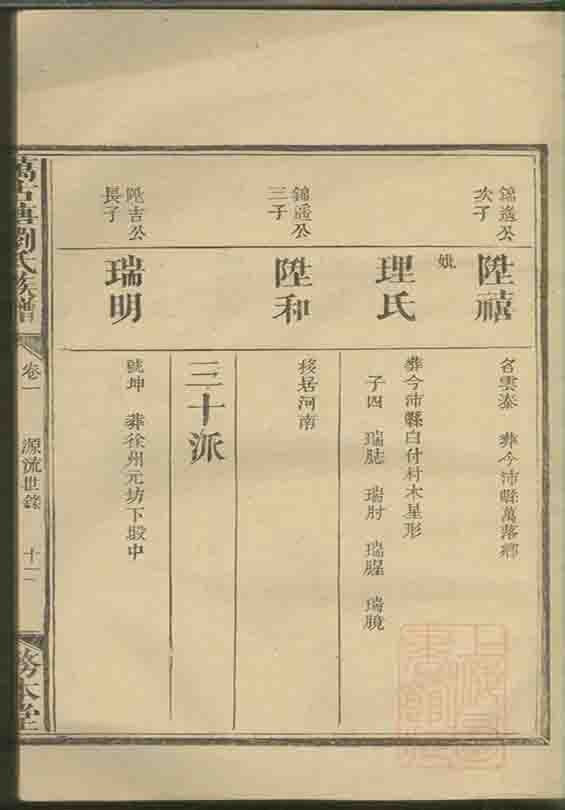 錦遙公
次子
陞禧
名雲泰　葬今沛縣萬落鄉
妣
理氏
葬今沛縣白付村木星形
子四　瑞肘　瑞腥
錦遙公
三子
陞和
移居河南
三十派
陞吉公
長子
瑞明
號坤　葬徐州元坊下殿中
萬古塘劉氏族譜
卷一
源流世錄
十二
務本堂